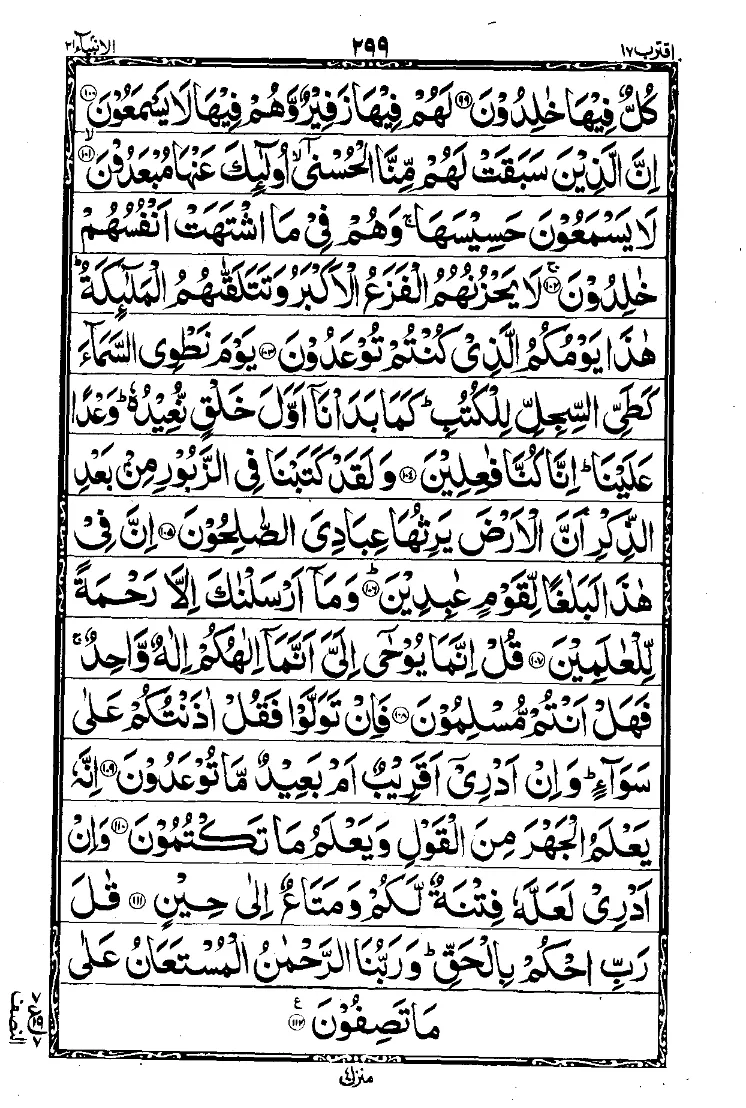 اقترب ١٧ ٢٩٩ الانبیآء ٢١
كُلٌّ فِيْهَا خٰلِدُوْنَ ۝٩٩ لَهُمْ فِيْهَا زَفِيْرٌ وَّهُمْ فِيْهَا لَا يَسْمَعُوْنَ ۝١٠٠
اِنَّ الَّذِيْنَ سَبَقَتْ لَهُمْ مِّنَّا الْحُسْنٰۤىۙ اُولٰٓئِكَ عَنْهَا مُبْعَدُوْنَۙ ۝١٠١
لَا يَسْمَعُوْنَ حَسِيْسَهَاۚ وَهُمْ فِيْ مَا اشْتَهَتْ اَنْفُسُهُمْ
خٰلِدُوْنَۚ ۝١٠٢ لَا يَحْزُنُهُمُ الْفَزَعُ الْاَكْبَرُ وَتَتَلَقّٰىهُمُ الْمَلٰٓئِكَةُؕ
هٰذَا يَوْمُكُمُ الَّذِيْ كُنْتُمْ تُوْعَدُوْنَ ۝١٠٣ يَوْمَ نَطْوِي السَّمَآءَ
كَطَيِّ السِّجِلِّ لِلْكُتُبِؕ كَمَا بَدَاْنَاۤ اَوَّلَ خَلْقٍ نُّعِيْدُهٗؕ وَعْدًا
عَلَيْنَاؕ اِنَّا كُنَّا فٰعِلِيْنَ ۝١٠٤ وَلَقَدْ كَتَبْنَا فِي الزَّبُوْرِ مِنْۢ بَعْدِ
الذِّكْرِ اَنَّ الْاَرْضَ يَرِثُهَا عِبَادِيَ الصّٰلِحُوْنَ ۝١٠٥ اِنَّ فِيْ
هٰذَا لَبَلٰغًا لِّقَوْمٍ عٰبِدِيْنَؕ ۝١٠٦ وَمَاۤ اَرْسَلْنٰكَ اِلَّا رَحْمَةً
لِّلْعٰلَمِيْنَ ۝١٠٧ قُلْ اِنَّمَا يُوْحٰۤى اِلَيَّ اَنَّمَاۤ اِلٰهُكُمْ اِلٰهٌ وَّاحِدٌۚ
فَهَلْ اَنْتُمْ مُّسْلِمُوْنَ ۝١٠٨ فَاِنْ تَوَلَّوْا فَقُلْ اٰذَنْتُكُمْ عَلٰى
سَوَآءٍؕ وَاِنْ اَدْرِيْۤ اَقَرِيْبٌ اَمْ بَعِيْدٌ مَّا تُوْعَدُوْنَ ۝١٠٩ اِنَّهٗ
يَعْلَمُ الْجَهْرَ مِنَ الْقَوْلِ وَيَعْلَمُ مَا تَكْتُمُوْنَ ۝١١٠ وَاِنْ
اَدْرِيْ لَعَلَّهٗ فِتْنَةٌ لَّكُمْ وَمَتَاعٌ اِلٰى حِيْنٍ ۝١١١ قٰلَ
رَبِّ احْكُمْ بِالْحَقِّؕ وَرَبُّنَا الرَّحْمٰنُ الْمُسْتَعَانُ عَلٰى
مَا تَصِفُوْنَ ۝١١٢ ع
النصف
منزل ٤